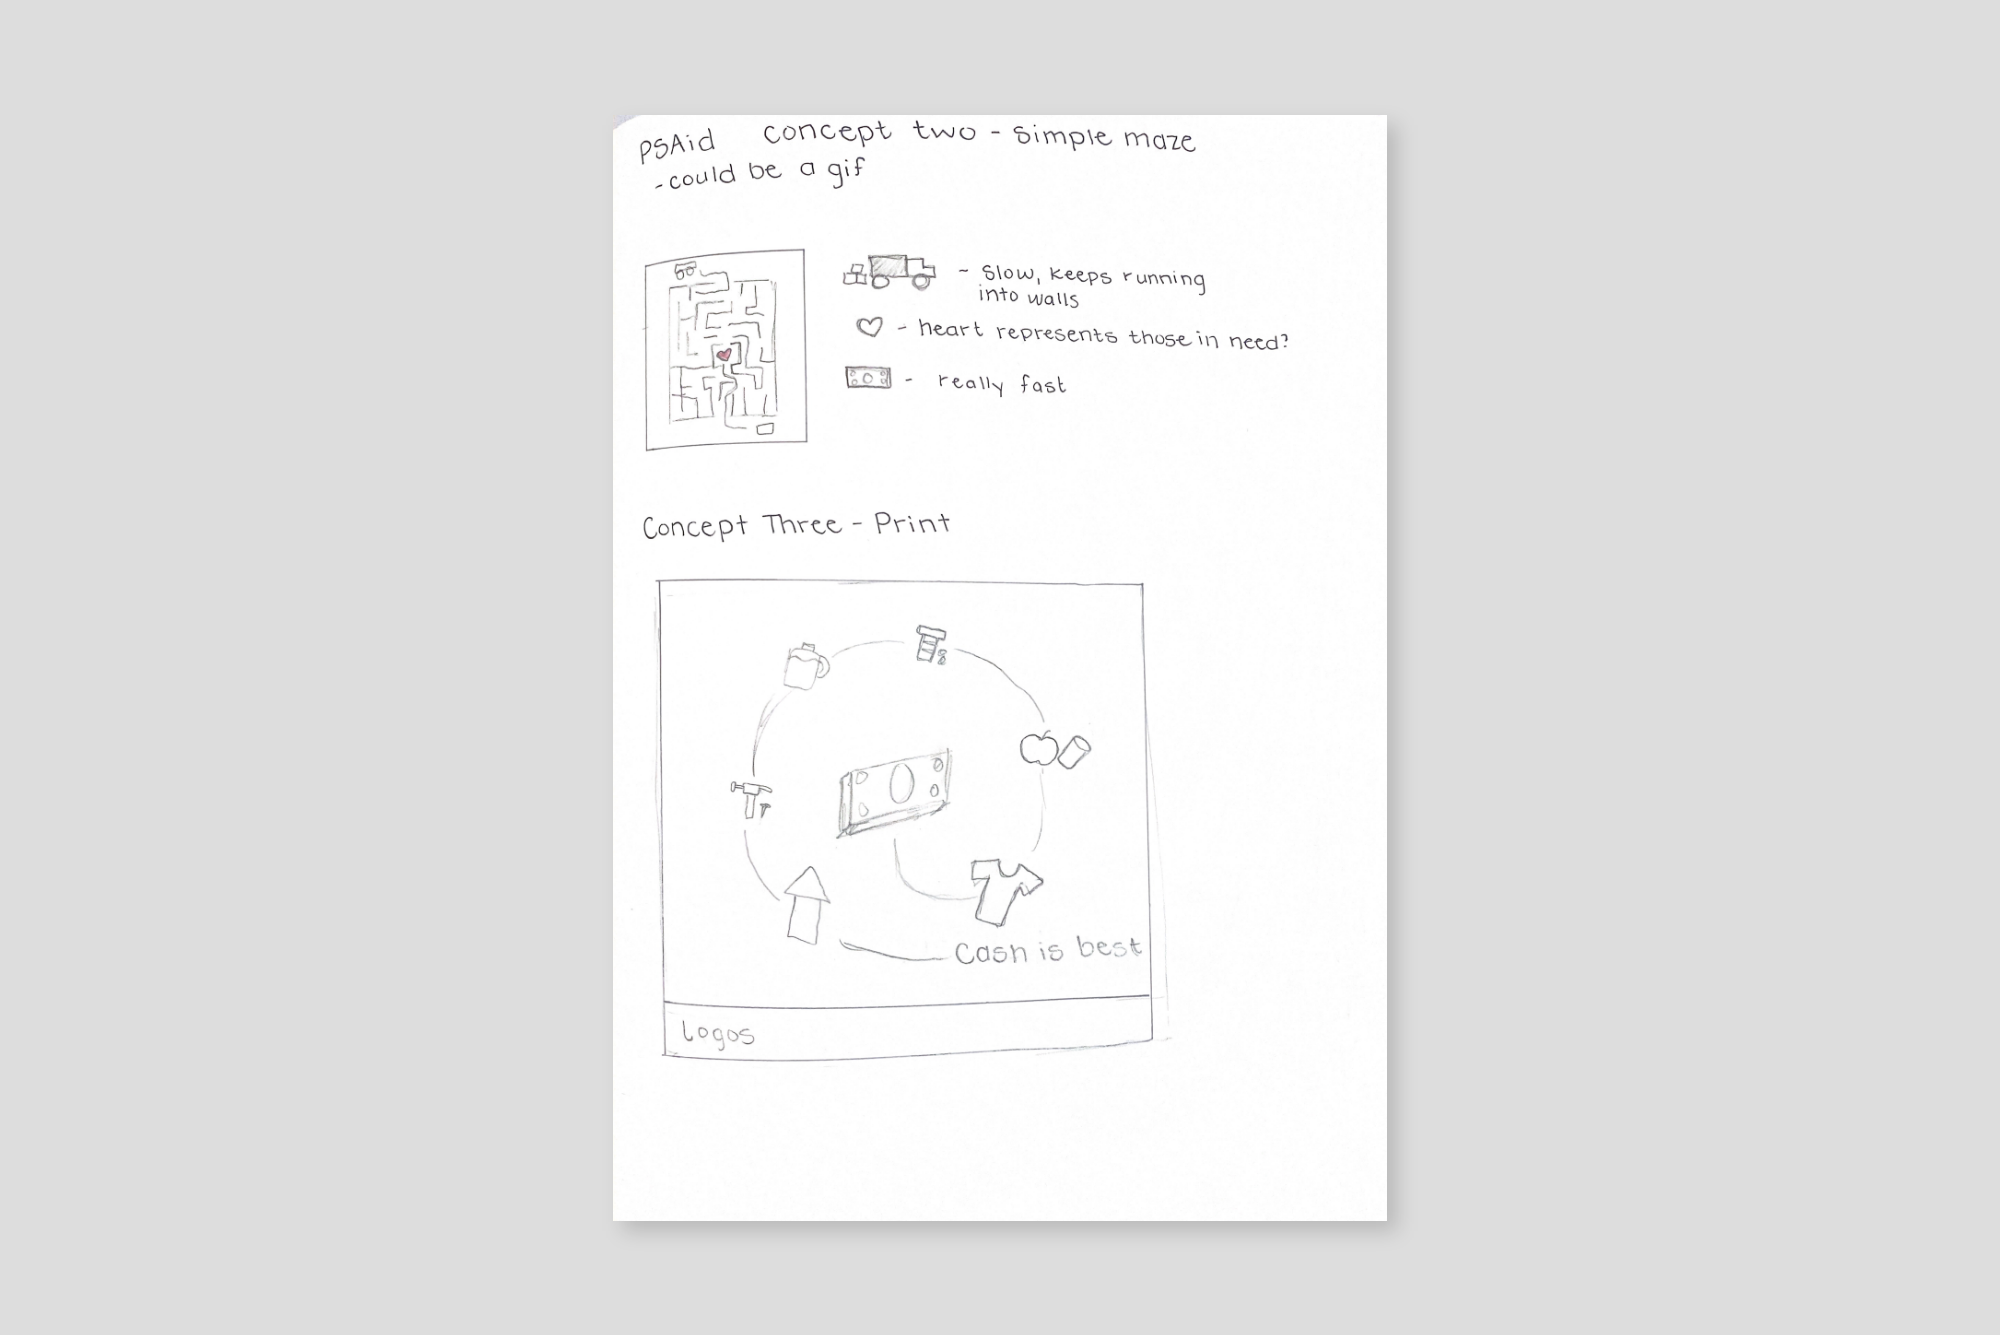 PSAid concept two - simple maze
- could be a gif
- Slow, keeps running
into walls
- heart represents those in need?
- really fast
Concept Three - Print
Cash is best
Logos